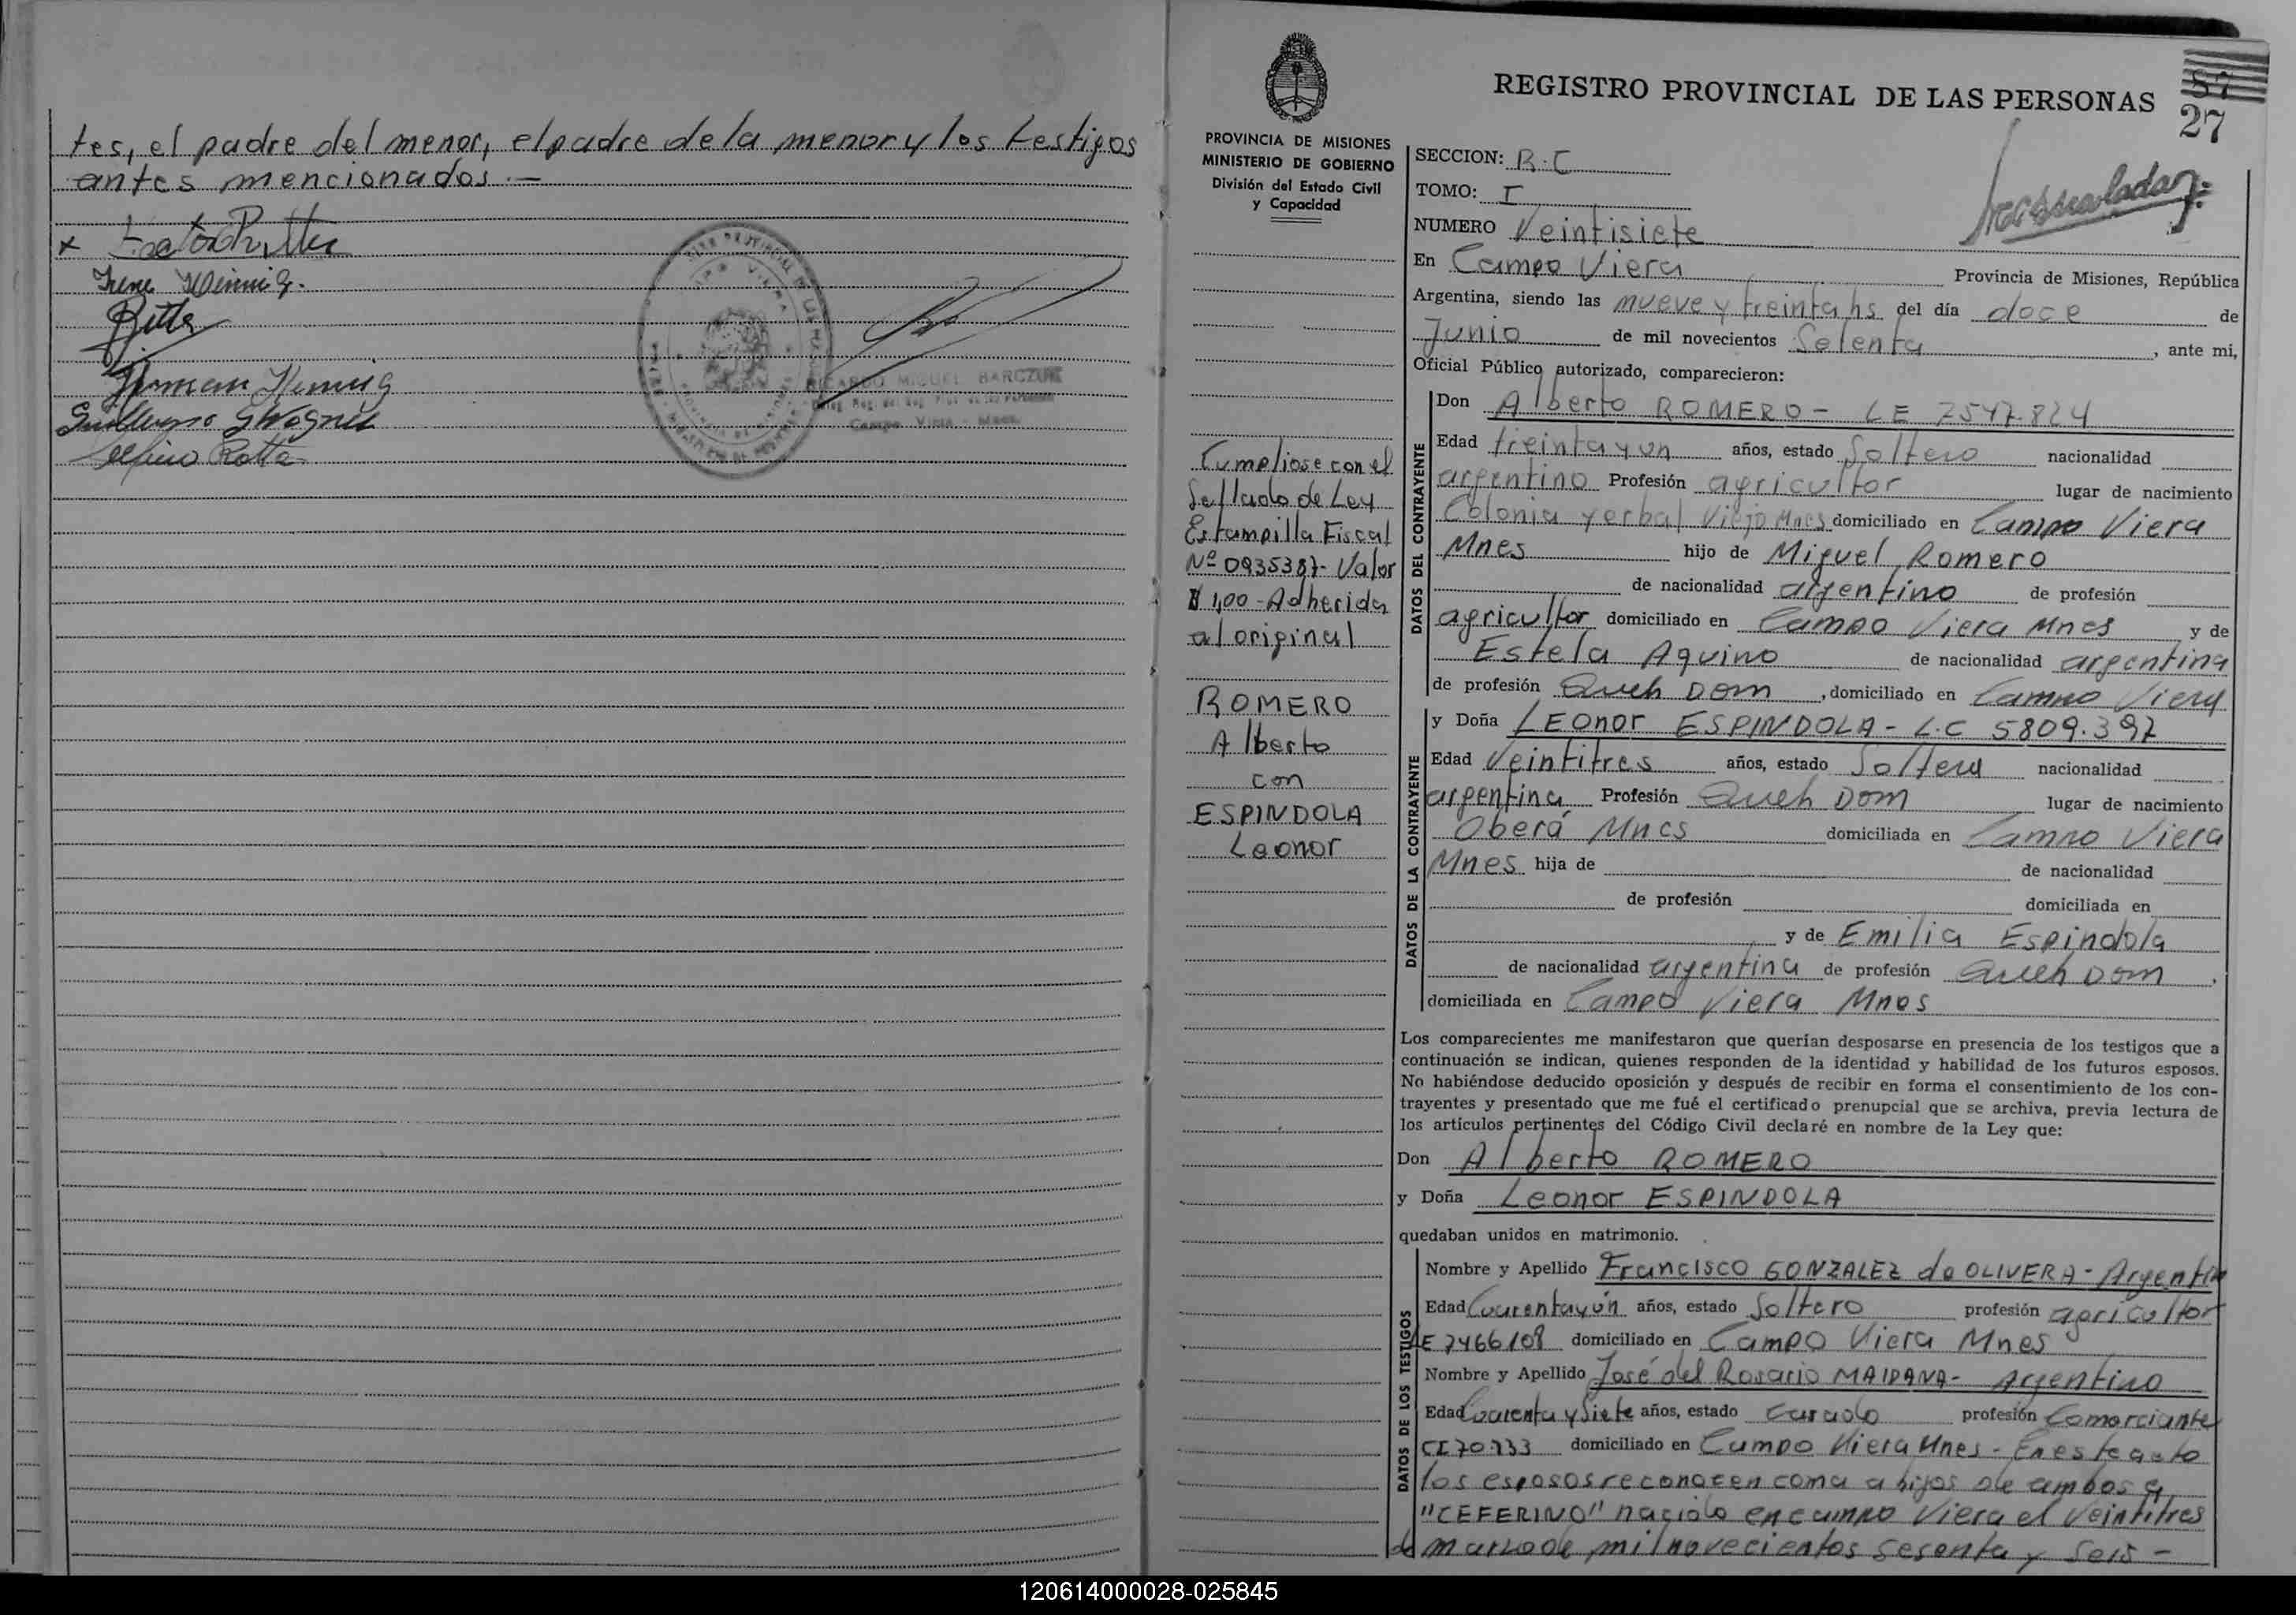 tes, el padre del menor, el padre de la menor y los testigos
antes mencionados.—
Irene Hennig.
Ritter
Herman Hennig
Guillermo G Wagner
Rotta
RICARDO MIGUEL BARCZUK
Campo Viera - Mnes.
REGISTRO PROVINCIAL DE LAS PERSONAS
57
27
PROVINCIA DE MISIONES
MINISTERIO DE GOBIERNO
División del Estado Civil
y Capacidad
Cumpliose con el
Sellado de Ley
Estampilla Fiscal
Nº 0935387- Valor
$ 1,00 - Adherida
al original
ROMERO
Alberto
con
ESPINDOLA
Leonor
SECCION: R.C
TOMO: I
NUMERO Veintisiete
En Campo Viera Provincia de Misiones, República
Argentina, siendo las nueve y treinta hs del día doce de
Junio de mil novecientos Setenta, ante mi,
Oficial Público autorizado, comparecieron:
DATOS DEL CONTRAYENTE
Don Alberto ROMERO - LE 7547.824
Edad treinta y un años, estado Soltero nacionalidad
argentino Profesión agricultor lugar de nacimiento
Colonia Yerbal Viejo Mnes domiciliado en Campo Viera
Mnes hijo de Miguel Romero
de nacionalidad argentino de profesión
agricultor domiciliado en Campo Viera Mnes y de
Estela Aquino de nacionalidad argentina
de profesión Queh Dom, domiciliado en Campo Viera
DATOS DE LA CONTRAYENTE
y Doña LEonor ESPINDOLA - L.C 5809.392
Edad Veintitres años, estado Soltera nacionalidad
argentina Profesión Queh Dom lugar de nacimiento
Oberá Mnes domiciliada en Campo Viera
Mnes hija de de nacionalidad
de profesión domiciliada en
y de Emilia Espindola
de nacionalidad argentina de profesión Queh Dom,
domiciliada en Campo Viera Mnes
Los comparecientes me manifestaron que querían desposarse en presencia de los testigos que a
continuación se indican, quienes responden de la identidad y habilidad de los futuros esposos.
No habiéndose deducido oposición y después de recibir en forma el consentimiento de los con-
trayentes y presentado que me fué el certificado prenupcial que se archiva, previa lectura de
los artículos pertinentes del Código Civil declaré en nombre de la Ley que:
Don Alberto ROMERO
y Doña Leonor ESPINDOLA
quedaban unidos en matrimonio.
DATOS DE LOS TESTIGOS
Nombre y Apellido Francisco GONZALEZ de OLIVERA - Argentin
Edad Cuarenta y un años, estado Soltero profesión agricultor
LE 7466108 domiciliado en Campo Viera Mnes
Nombre y Apellido José del Rosario MAIDANA - Argentino
Edad Cuarenta y Siete años, estado Casado profesión Comerciante
CI 70.733 domiciliado en Campo Viera Mnes - En este acto
los esposos reconocen como a hijos de ambos a
"CEFERINO" nacido en campo Viera el Veintitres
de marzo de mil novecientos sesenta y seis -
120614000028-025845